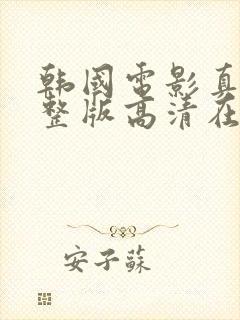 韩国电影真
整版高清在
安子苏